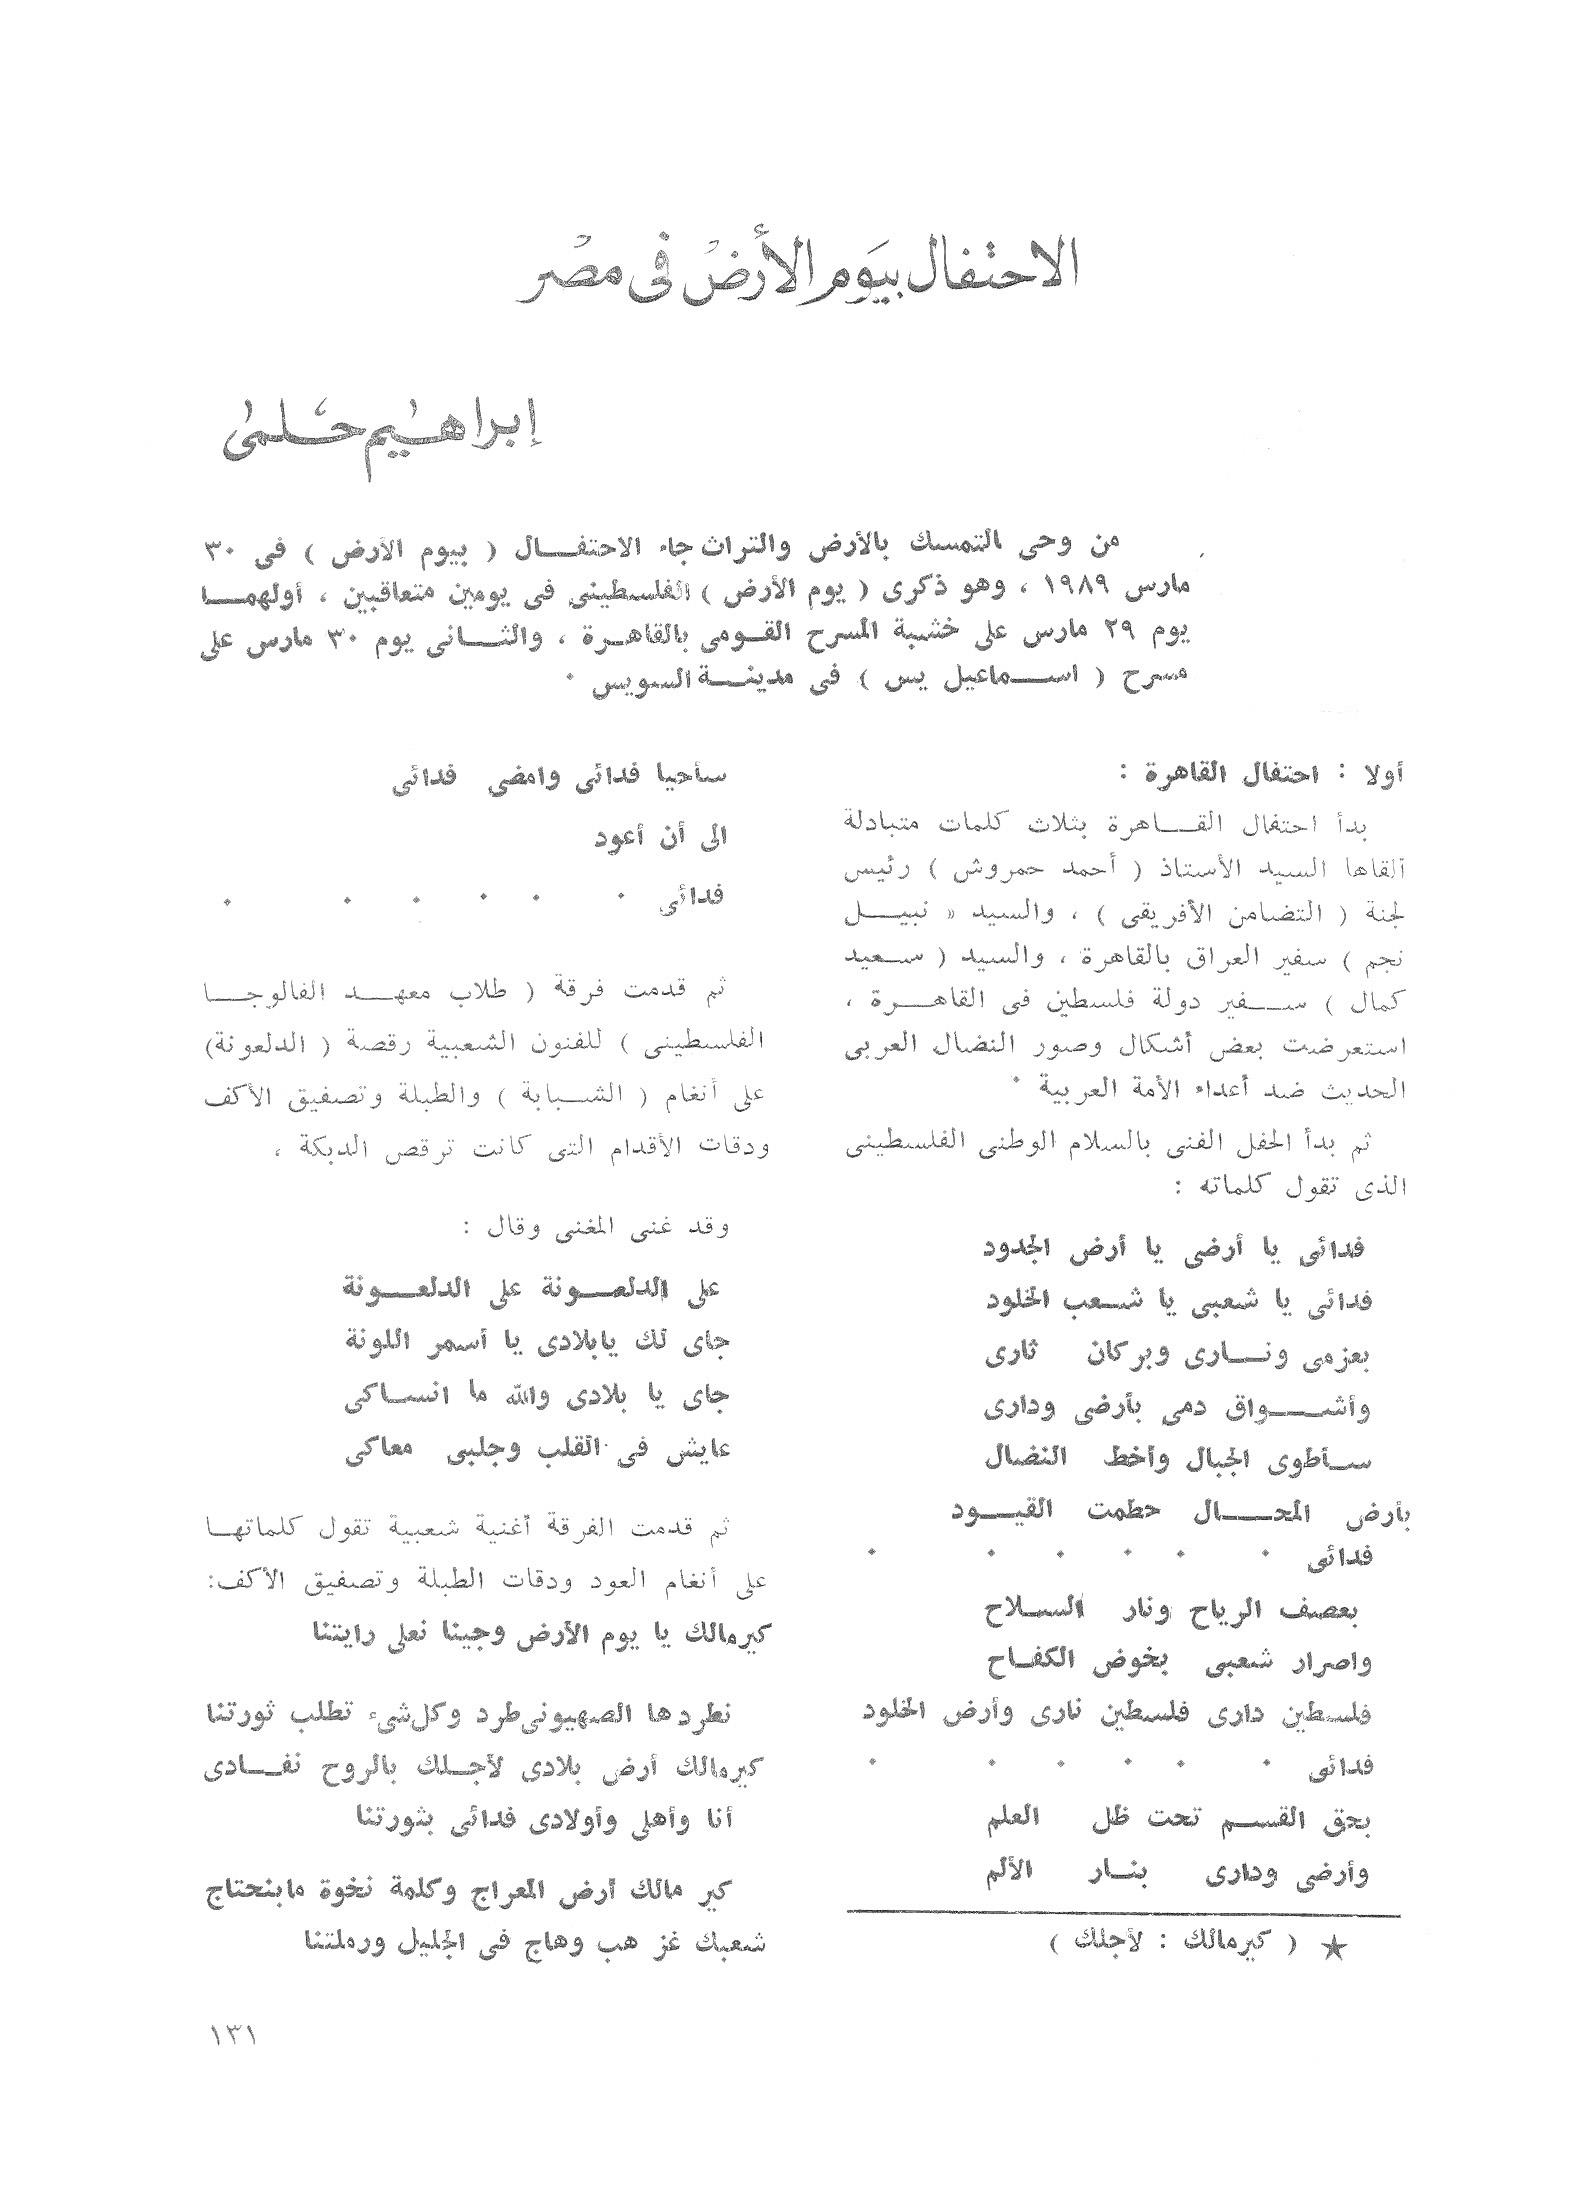 الاحتفال بيوم الأرض فى مصر
إبراهيم حلمى
من وحى التمسك بالأرض والتراث جاء الاحتفال ( بيوم الأرض ) فى ٣٠
مارس ١٩٨٩ ، وهو ذكرى ( يوم الأرض ) الفلسطينى فى يومين متعاقبين ، أولهما
يوم ٢٩ مارس على خشبة المسرح القومى بالقاهرة ، والثانى يوم ٣٠ مارس على
مسرح ( اسماعيل يس ) فى مدينة السويس ٠
أولا : احتفال القاهرة :
بدأ احتفال القاهرة بثلاث كلمات متبادلة
ألقاها السيد الأستاذ ( أحمد حمروش ) رئيس
لجنة ( التضامن الأفريقى ) ، والسيد « نبيل
نجم ) سفير العراق بالقاهرة ، والسيد ( سعيد
كمال ) سفير دولة فلسطين فى القاهرة ،
استعرضت بعض أشكال وصور النضال العربى
الحديث ضد أعداء الأمة العربية ٠
ثم بدأ الحفل الفنى بالسلام الوطنى الفلسطينى
الذى تقول كلماته :
فدائى يا أرضى يا أرض الجدود
فدائى يا شعبى يا شعب الخلود
بعزمى ونارى وبركان ثارى
وأشواق دمى بأرضى ودارى
سأطوى الجبال وأخط النضال
بأرض المحال حطمت القيود
فدائى ٠ ٠ ٠ ٠ ٠ ٠
بعصف الرياح ونار السلاح
واصرار شعبى بخوض الكفاح
فلسطين دارى فلسطين نارى وأرض الخلود
فدائى ٠ ٠ ٠ ٠ ٠ ٠
بحق القسم تحت ظل العلم
وأرضى ودارى بنار الألم
★ ( كيرمالك : لأجلك )
سأحيا فدائى وامضى فدائى
الى أن أعود
فدائى ٠ ٠ ٠ ٠ ٠ ٠
ثم قدمت فرقة ( طلاب معهد الفالوجا
الفلسطينى ) للفنون الشعبية رقصة ( الدلعونة)
على أنغام ( الشبابة ) والطبلة وتصفيق الأكف
ودقات الأقدام التى كانت ترقص الدبكة ،
وقد غنى المغنى وقال :
على الدلعونة على الدلعونة
جاى لك يابلادى يا أسمر اللونة
جاى يا بلادى والله ما انساكى
عايش فى القلب وجلبى معاكى
ثم قدمت الفرقة أغنية شعبية تقول كلماتها
على أنغام العود ودقات الطبلة وتصفيق الأكف:
كيرمالك يا يوم الأرض وجينا نعلى رايتنا
نطردها الصهيونى طرد وكل شىء تطلب ثورتنا
كيرمالك أرض بلادى لأجلك بالروح نفادى
أنا وأهلى وأولادى فدائى بثورتنا
كير مالك أرض المعراج وكلمة نخوة مابنحتاج
شعبك غز هب وهاج فى الجليل ورملتنا
١٣١